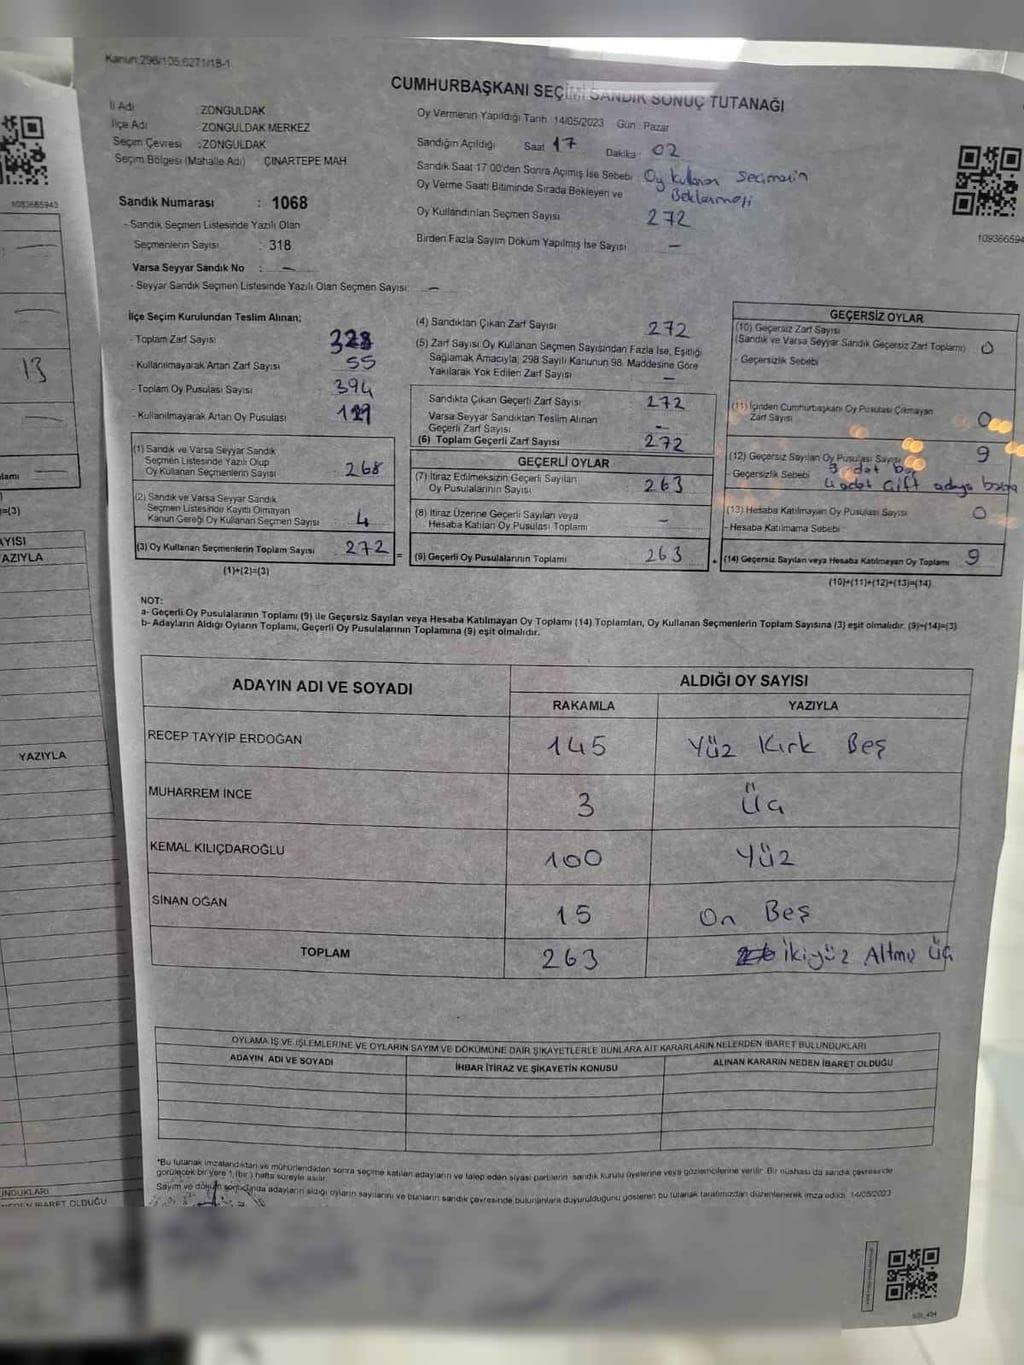 Kanun:298/105,6271/18-1
CUMHURBAŞKANI SEÇİMİ SANDIK SONUÇ TUTANAĞI
İl Adı ZONGULDAK
İlçe Adı : ZONGULDAK MERKEZ
Seçim Çevresi :ZONGULDAK
Seçim Bölgesi (Mahalle Adı) : ÇINARTEPE MAH
Sandık Numarası : 1068
- Sandık Seçmen Listesinde Yazılı Olan
Seçmenlerin Sayısı : 318
Varsa Seyyar Sandık No : —
- Seyyar Sandık Seçmen Listesinde Yazılı Olan Seçmen Sayısı: —
Oy Vermenin Yapıldığı Tarih : 14/05/2023 Gün : Pazar
Sandığın Açıldığı Saat 17 Dakika : 02
Sandık Saat 17:00'den Sonra Açılmış İse Sebebi : Oy kullanan Seçmenin
Oy Verme Saati Bitiminde Sırada Bekleyen ve Beklenmesi
Oy Kullandırılan Seçmen Sayısı 272
Birden Fazla Sayım Döküm Yapılmış İse Sayısı : —
109366594
İlçe Seçim Kurulundan Teslim Alınan;
- Toplam Zarf Sayısı :
- Kullanılmayarak Artan Zarf Sayısı : 55
- Toplam Oy Pusulası Sayısı : 394
- Kullanılmayarak Artan Oy Pusulası :
(1) Sandık ve Varsa Seyyar Sandık
Seçmen Listesinde Yazılı Olup
Oy Kullanan Seçmenlerin Sayısı : 268
(2) Sandık ve Varsa Seyyar Sandık
Seçmen Listesinde Kayıtlı Olmayan
Kanun Gereği Oy Kullanan Seçmen Sayısı : 4
(3) Oy Kullanan Seçmenlerin Toplam Sayısı : 272
(1)+(2)=(3)
(4) Sandıktan Çıkan Zarf Sayısı 272
(5) Zarf Sayısı Oy Kullanan Seçmen Sayısından Fazla İse, Eşitliği
Sağlamak Amacıyla, 298 Sayılı Kanunun 98. Maddesine Göre
Yakılarak Yok Edilen Zarf Sayısı —
Sandıkta Çıkan Geçerli Zarf Sayısı : 272
Varsa Seyyar Sandıktan Teslim Alınan
Geçerli Zarf Sayısı : —
(6) Toplam Geçerli Zarf Sayısı : 272
GEÇERLİ OYLAR
(7) İtiraz Edilmeksizin Geçerli Sayılan
Oy Pusulalarının Sayısı : 263
(8) İtiraz Üzerine Geçerli Sayılan veya
Hesaba Katılan Oy Pusulası Toplamı : —
(9) Geçerli Oy Pusulalarının Toplamı : 263
GEÇERSİZ OYLAR
(10) Geçersiz Zarf Sayısı
(Sandık ve Varsa Seyyar Sandık Geçersiz Zarf Toplamı) : 0
- Geçersizlik Sebebi :
(11) İçinden Cumhurbaşkanı Oy Pusulası Çıkmayan
Zarf Sayısı : 0
(12) Geçersiz Sayılan Oy Pusulası Sayısı : 9
- Geçersizlik Sebebi
(13) Hesaba Katılmayan Oy Pusulası Sayısı : 0
- Hesaba Katılmama Sebebi :
(14) Geçersiz Sayılan veya Hesaba Katılmayan Oy Toplamı : 9
(10)+(11)+(12)+(13)=(14)
NOT:
a- Geçerli Oy Pusulalarının Toplamı (9) ile Geçersiz Sayılan veya Hesaba Katılmayan Oy Toplamı (14) Toplamları, Oy Kullanan Seçmenlerin Toplam Sayısına (3) eşit olmalıdır. (9)+(14)=(3)
b- Adayların Aldığı Oyların Toplamı, Geçerli Oy Pusulalarının Toplamına (9) eşit olmalıdır.
ADAYIN ADI VE SOYADI ALDIĞI OY SAYISI
RAKAMLA YAZIYLA
RECEP TAYYİP ERDOĞAN 145 Yüz Kırk Beş
MUHARREM İNCE 3 Üç
KEMAL KILIÇDAROĞLU 100 Yüz
SİNAN OĞAN 15 On Beş
TOPLAM 263 İkiyüz Altmış Üç
OYLAMA İŞ VE İŞLEMLERİNE VE OYLARIN SAYIM VE DÖKÜMÜNE DAİR ŞİKAYETLERLE BUNLARA AİT KARARLARIN NELERDEN İBARET BULUNDUKLARI
ADAYIN ADI VE SOYADI İHBAR İTİRAZ VE ŞİKAYETİN KONUSU ALINAN KARARIN NEDEN İBARET OLDUĞU
*Bu tutanak imzalandıktan ve mühürlendikten sonra seçime katılan adayların ve talep eden siyasi partilerin sandık kurulu üyelerine veya gözlemcilerine verilir. Bir nüshası da sandık çevresinde
görülecek bir yere 1 (bir) hafta süreyle asılır.
Sayım ve döküm sonucunda adayların aldığı oyların sayılarını ve bunların sandık çevresinde bulunanlara duyurulduğunu gösteren bu tutanak tarafımızdan düzenlenerek imza edildi. 14/05/2023
1093665943
13
=(3)
YAZIYLA
YAZIYLA